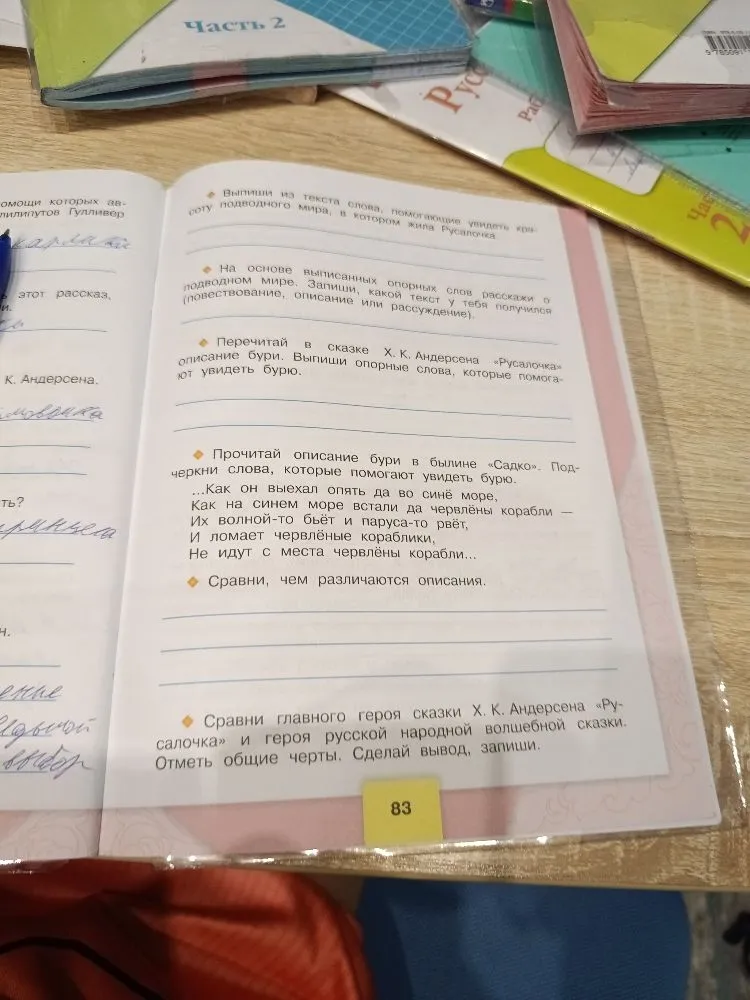 Часть 2
Русс
Раб
Час
2
9 785091
омощи которых ав-
лилипутов Гулливер
этот рассказ,
и.
К. Андерсена.
ть?
н.
ведьмой
выбор
◆ Выпиши из текста слова, помогающие увидеть кра-
соту подводного мира, в котором жила Русалочка.
◆ На основе выписанных опорных слов расскажи о
подводном мире. Запиши, какой текст у тебя получился
(повествование, описание или рассуждение).
◆ Перечитай в сказке Х. К. Андерсена «Русалочка»
описание бури. Выпиши опорные слова, которые помога-
ют увидеть бурю.
◆ Прочитай описание бури в былине «Садко». Под-
черкни слова, которые помогают увидеть бурю.
...Как он выехал опять да во синё море,
Как на синем море встали да червлёны корабли —
Их волной-то бьёт и паруса-то рвёт,
И ломает червлёные кораблики,
Не идут с места червлёны корабли...
◆ Сравни, чем различаются описания.
◆ Сравни главного героя сказки Х. К. Андерсена «Ру-
салочка» и героя русской народной волшебной сказки.
Отметь общие черты. Сделай вывод, запиши.
83